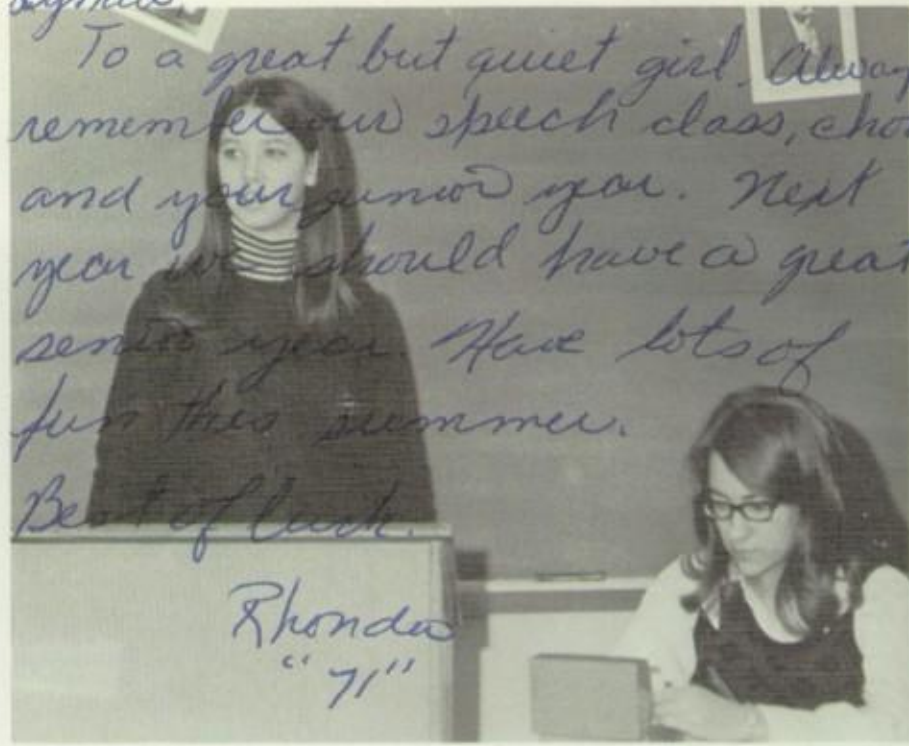 To a great but quiet girl. Always
remember our speech class, choir
and your junior year. Next
year we should have a great
senior year. Have lots of
fun this summer.
Best of luck.
Rhonda
"71"